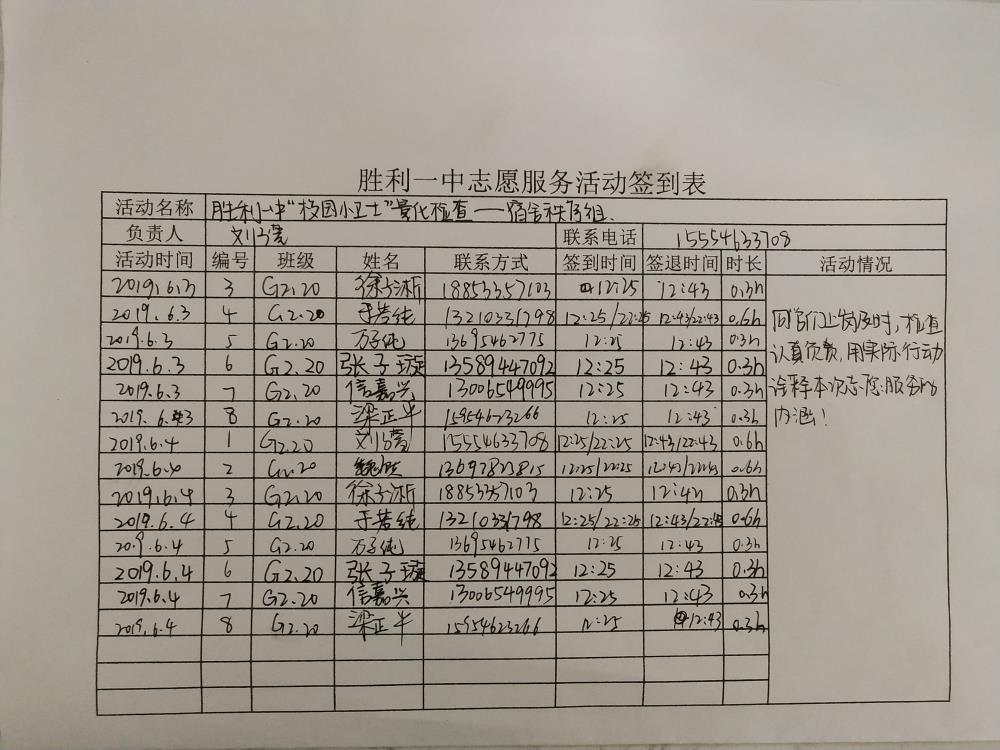 胜利一中志愿服务活动签到表
活动名称 胜利一中"校园小卫士"量化检查——宿舍秩序组.
负责人 联系电话 15554633708
活动时间 编号 班级 姓名 联系方式 签到时间 签退时间 时长 活动情况
2019.6.3 3 G2.20 18853357103 12:25 12:43 0.3h
2019.6.3 4 G2.20 于若纯 13210331798 12:25/22:25 12:43/22:43 0.6h
2019.6.3 5 G2.20 万子纯 13695462775 12:25 12:43 0.3h
2019.6.3 6 G2.20 张子璇 13589447092 12:25 12:43 0.3h
2019.6.3 7 G2.20 信嘉兴 13006549995 12:25 12:43 0.3h
2019.6.3 8 G2.20 梁正午 15954623266 12:25 12:43 0.3h
2019.6.4 1 G2.20 15554633708 12:25/22:25 12:43/22:43 0.6h
2019.6.4 2 G2.20 12:25/22:25 12:43/22:43 0.6h
2019.6.4 3 G2.20 1885357103 12:25 12:42 0.3h
2019.6.4 4 G2.20 于若纯 13210331798 12:25/22:25 0.6h
2019.6.4 5 G2.20 万子纯 13695462775 12:25 12:43 0.3h
2019.6.4 6 G2.20 张子璇 13589447092 12:25 12:43 0.3h
2019.6.4 7 G2.20 信嘉兴 13006549995 12:25 12:43 0.3h
2019.6.4 8 G2.20 梁正午 15954623266 12:25 12:43 0.3h
同学们上岗及时,检查
认真负责,用实际行动
诠释本次志愿服务的
内涵!